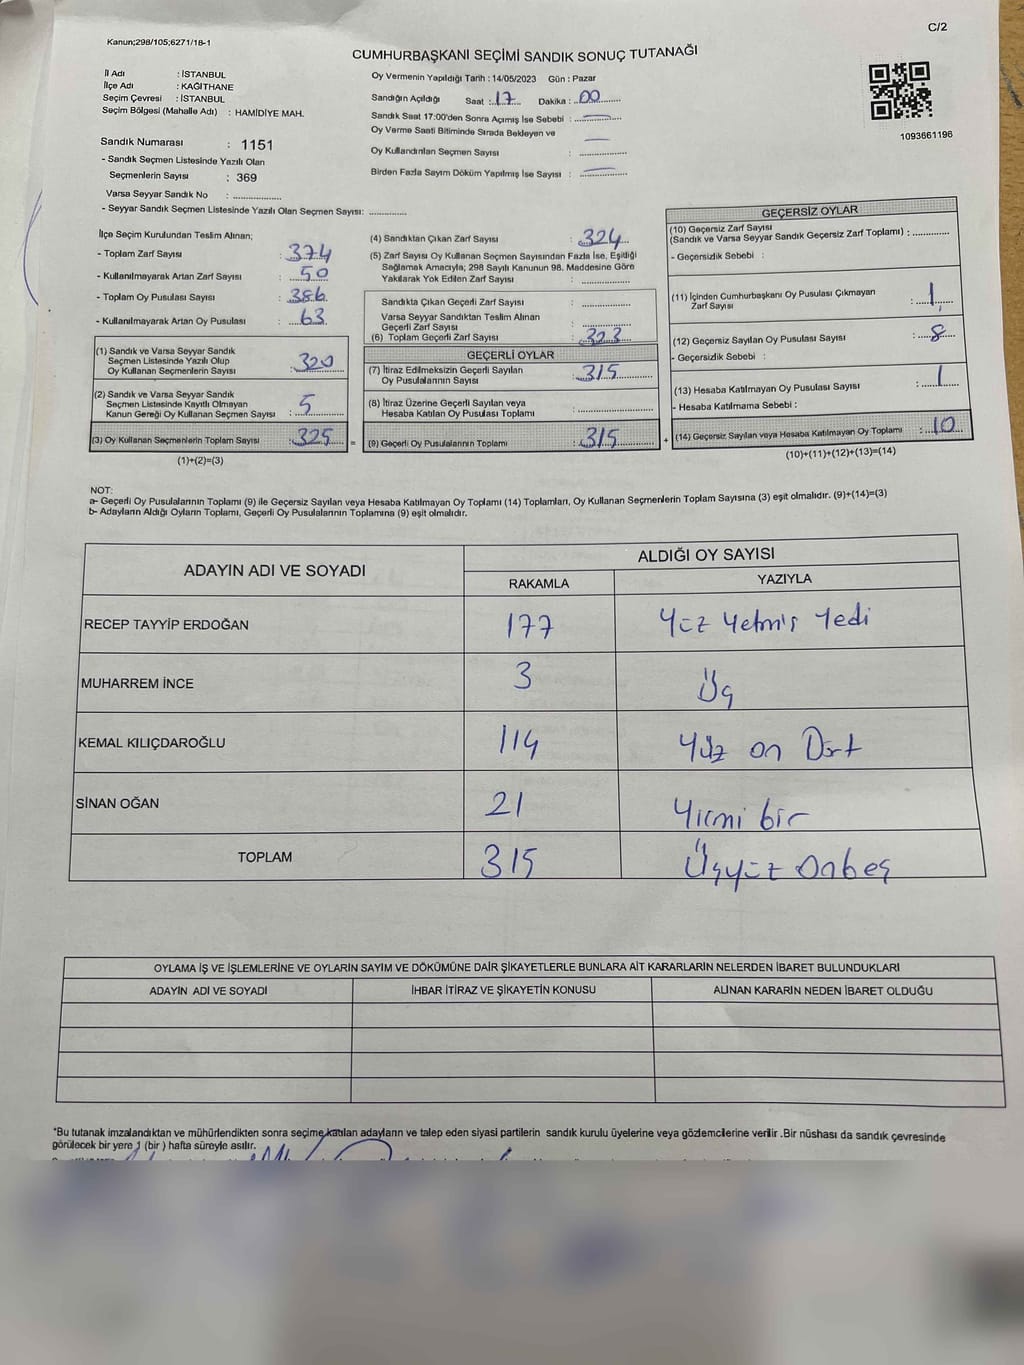 C/2
Kanun;298/105;6271/18-1
CUMHURBAŞKANI SEÇİMİ SANDIK SONUÇ TUTANAĞI
İl Adı : İSTANBUL
İlçe Adı : KAĞITHANE
Seçim Çevresi : İSTANBUL
Seçim Bölgesi (Mahalle Adı) : HAMİDİYE MAH.
Sandık Numarası : 1151
- Sandık Seçmen Listesinde Yazılı Olan
Seçmenlerin Sayısı : 369
Varsa Seyyar Sandık No : ..................
- Seyyar Sandık Seçmen Listesinde Yazılı Olan Seçmen Sayısı: ..............
Oy Vermenin Yapıldığı Tarih : 14/05/2023 Gün : Pazar
Sandığın Açıldığı Saat : 17 Dakika : 00
Sandık Saat 17:00'den Sonra Açımış İse Sebebi : —
Oy Verme Saati Bitiminde Sırada Bekleyen ve —
Oy Kullandırılan Seçmen Sayısı : ..................
Birden Fazla Sayım Döküm Yapılmış İse Sayısı : —
1093661196
İlçe Seçim Kurulundan Teslim Alınan;
- Toplam Zarf Sayısı : 374
- Kullanılmayarak Artan Zarf Sayısı : 50
- Toplam Oy Pusulası Sayısı : 386
- Kullanılmayarak Artan Oy Pusulası : 63
(1) Sandık ve Varsa Seyyar Sandık
Seçmen Listesinde Yazılı Olup
Oy Kullanan Seçmenlerin Sayısı : 320
(2) Sandık ve Varsa Seyyar Sandık
Seçmen Listesinde Kayıtlı Olmayan
Kanun Gereği Oy Kullanan Seçmen Sayısı : 5
(3) Oy Kullanan Seçmenlerin Toplam Sayısı : 325 =
(1)+(2)=(3)
(4) Sandıktan Çıkan Zarf Sayısı : 324
(5) Zarf Sayısı Oy Kullanan Seçmen Sayısından Fazla İse, Eşitliği
Sağlamak Amacıyla; 298 Sayılı Kanunun 98. Maddesine Göre
Yakılarak Yok Edilen Zarf Sayısı : ..................
Sandıkta Çıkan Geçerli Zarf Sayısı : ..................
Varsa Seyyar Sandıktan Teslim Alınan
Geçerli Zarf Sayısı : ..................
(6) Toplam Geçerli Zarf Sayısı : 323
GEÇERLİ OYLAR
(7) İtiraz Edilmeksizin Geçerli Sayılan
Oy Pusulalarının Sayısı : 315
(8) İtiraz Üzerine Geçerli Sayılan veya
Hesaba Katılan Oy Pusulası Toplamı : ..................
(9) Geçerli Oy Pusulalarının Toplamı : 315 +
GEÇERSİZ OYLAR
(10) Geçersiz Zarf Sayısı
(Sandık ve Varsa Seyyar Sandık Geçersiz Zarf Toplamı) : ..............
- Geçersizlik Sebebi :
(11) İçinden Cumhurbaşkanı Oy Pusulası Çıkmayan
Zarf Sayısı : 1
(12) Geçersiz Sayılan Oy Pusulası Sayısı : 8
- Geçersizlik Sebebi :
(13) Hesaba Katılmayan Oy Pusulası Sayısı : 1
- Hesaba Katılmama Sebebi :
(14) Geçersiz Sayılan veya Hesaba Katılmayan Oy Toplamı : 10
(10)+(11)+(12)+(13)=(14)
NOT:
a- Geçerli Oy Pusulalarının Toplamı (9) ile Geçersiz Sayılan veya Hesaba Katılmayan Oy Toplamı (14) Toplamları, Oy Kullanan Seçmenlerin Toplam Sayısına (3) eşit olmalıdır. (9)+(14)=(3)
b- Adayların Aldığı Oyların Toplamı, Geçerli Oy Pusulalarının Toplamına (9) eşit olmalıdır.
ADAYIN ADI VE SOYADI ALDIĞI OY SAYISI
RAKAMLA YAZIYLA
RECEP TAYYİP ERDOĞAN 177 Yüz Yetmiş Yedi
MUHARREM İNCE 3 Üç
KEMAL KILIÇDAROĞLU 114 Yüz on Dört
SİNAN OĞAN 21 Yirmi bir
TOPLAM 315 Üçyüz Onbeş
OYLAMA İŞ VE İŞLEMLERİNE VE OYLARIN SAYIM VE DÖKÜMÜNE DAİR ŞİKAYETLERLE BUNLARA AİT KARARLARIN NELERDEN İBARET BULUNDUKLARI
ADAYIN ADI VE SOYADI İHBAR İTİRAZ VE ŞİKAYETİN KONUSU ALINAN KARARIN NEDEN İBARET OLDUĞU
*Bu tutanak imzalandıktan ve mühürlendikten sonra seçime katılan adayların ve talep eden siyasi partilerin sandık kurulu üyelerine veya gözlemcilerine verilir .Bir nüshası da sandık çevresinde
görülecek bir yere 1 (bir ) hafta süreyle asılır.